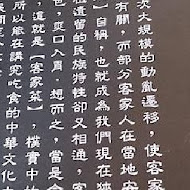 次大規模的動亂遷移，使客家
有關，而部分客家人在當地安
】自稱，也就成為我們現在狹
祖遺留的民族特性卻又相通，客
色，爽口入胃，想而之，當是食
，這就是【客家菜】 樸實中於
所以能在講究吃食的中華文化